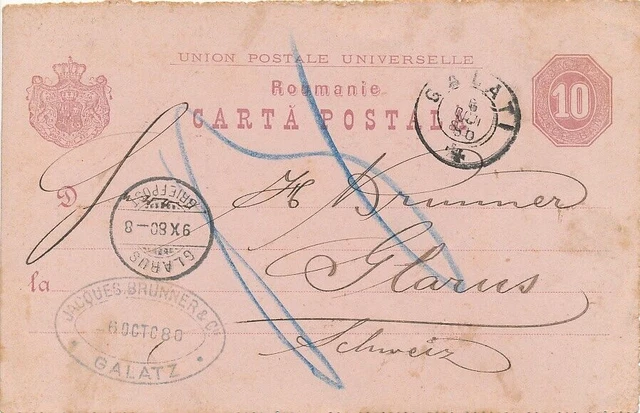 UNION POSTALE UNIVERSELLE
Roumanie
CARTĂ POSTAL
10
GALATI
6
80
D
H Brunner
BRIEFPOST
9 X 80-8
GLARUS
Glarus
la
JACQUES BRUNNER & Co
6 OCT C80
GALATZ
Schweiz